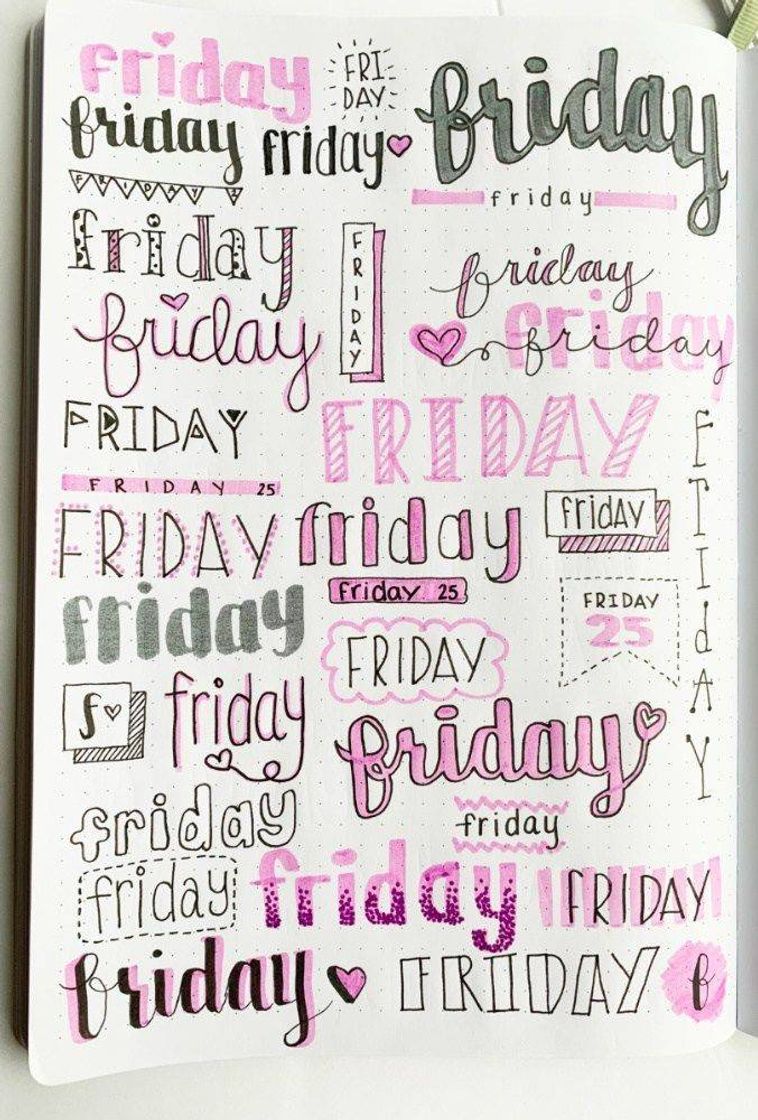 friday
FRI
DAY
friday
friday
friday
FRIDAY
friday
friday
FRIDAY
friday
friday
friday
friday
FRIDAY
FRIDAY
FrIdAY
FRIDAY 25
FRIDAY
friday
fridAY
friday 25
friday
FRIDAY
25
FRIDAY
f
friday
friday
friday
friday
friday
friday
FRIDAY
friday
FRIDAY
f